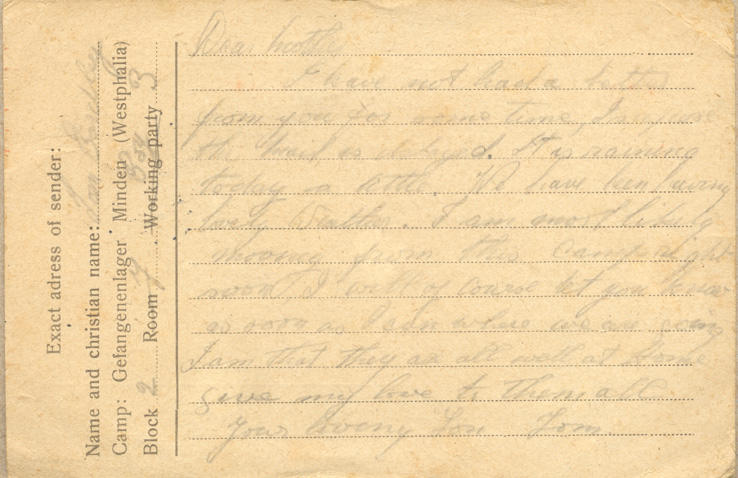 Exact adress of sender:
Name and christian name: Tom
Camp: Gefangenenlager Minden (Westphalia)
Block 2 Room 7 Working party 3
Dear Mother
I have not had a letter
from you for some time, I suppose
the mail is delayed. It is raining
today a little. We have been having
lovely Weather. I am most likely
moving from this camp right
soon, I will of course let you know
as soon as I can where we are going
I am that they are all well at Home
give my love to them all
Your loving Son Tom